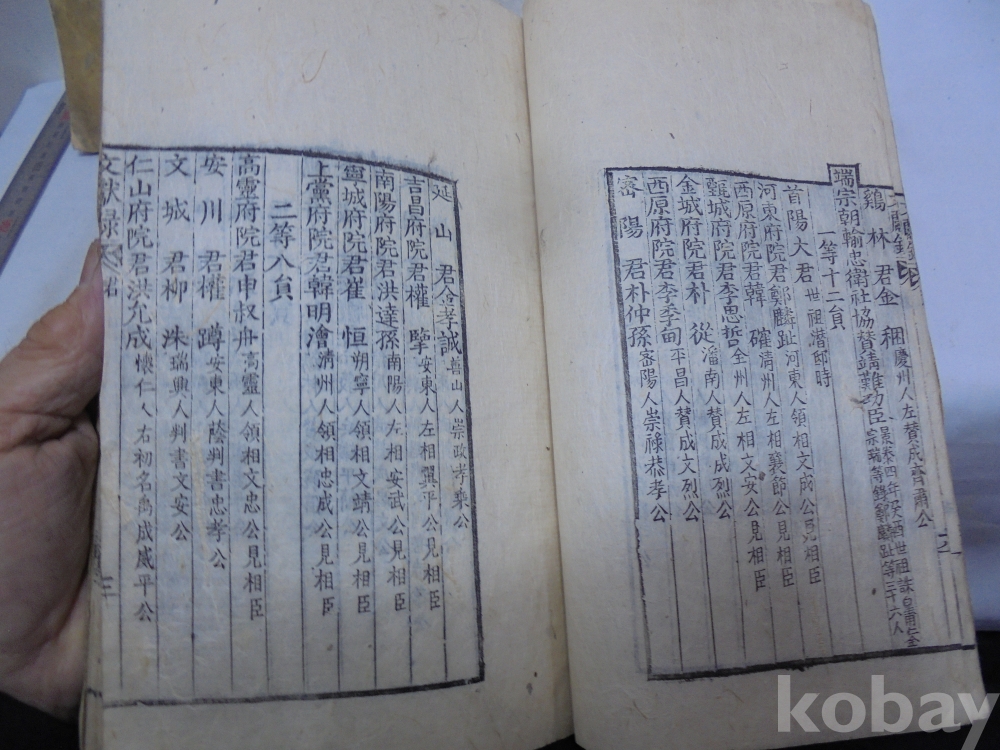 鷄林君金稛慶州人左賛成齊肅公
端宗朝輸忠衛社協賛靖難功臣景泰四年癸酉世祖誅皇甫仁金宗瑞等錄鄭麟趾等三十六人
一等十二員
首陽大君世祖潛邸時
河東府院君鄭麟趾河東人領相文成公見相臣
西原府院君韓確清州人左相襄節公見相臣
西原府院君李思哲全州人左相文安公見相臣
甄城府院君朴從潘南人賛成成烈公
金城府院君李季甸平昌人賛成文烈公
密陽君朴仲孫密陽人崇祿恭孝公
延山君金孝誠善山人崇政孝樂公
吉昌府院君權擥安東人左相翼平公見相臣
南陽府院君洪達孫南陽人左相安武公見相臣
寧城府院君崔恒朔寧人領相文靖公見相臣
上黨府院君韓明澮清州人領相忠成公見相臣
二等八員
高靈府院君申叔舟高靈人領相文忠公見相臣
安川君權蹲安東人蔭判書忠孝公
文城君柳洙瑞興人判書文安公
仁山府院君洪允成懷仁人右初名禹成威平公
文獻錄
kobay